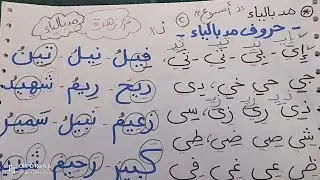 مد بالياء
- حروف مد بالياء -
إي - بي - تي - ثي
فيل نيل تين
جي حي خي دي
ريح ريم شهيد
ذي ري زي سي
زعيم نبيل سمير
شي صي ضي طي
كبير رحيم
ظي عي غي في